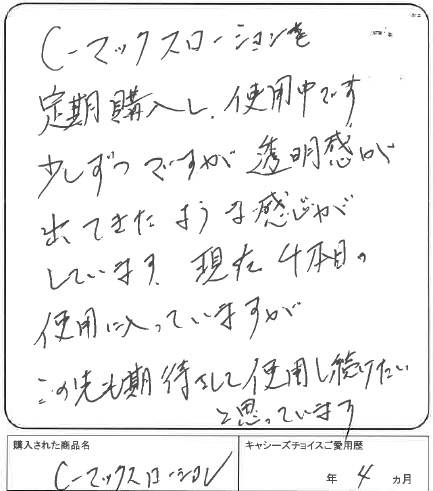 C-マックスローションを
定期購入し、使用中です
少しずつですが透明感が
出てきたような感じが
しています。現在4本目の
使用に入っていますが
この先も期待して使用し続けたい
と思っています
購入された商品名
キャシーズチョイスご愛用歴
C-マックスローション
年 4 ヵ月